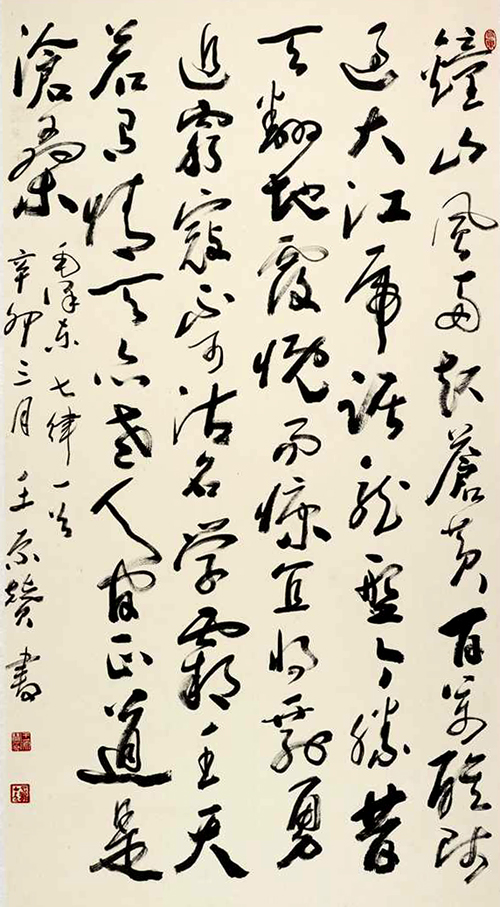 鐘山風雨起蒼黄百萬雄师
过大江虎踞龙盤今勝昔
天翻地覆慨而慷宜将剩勇
追窮寇不可沽名学霸王天
若有情天亦老人间正道是
滄桑
毛泽东七律一首
辛卯三月 王 書